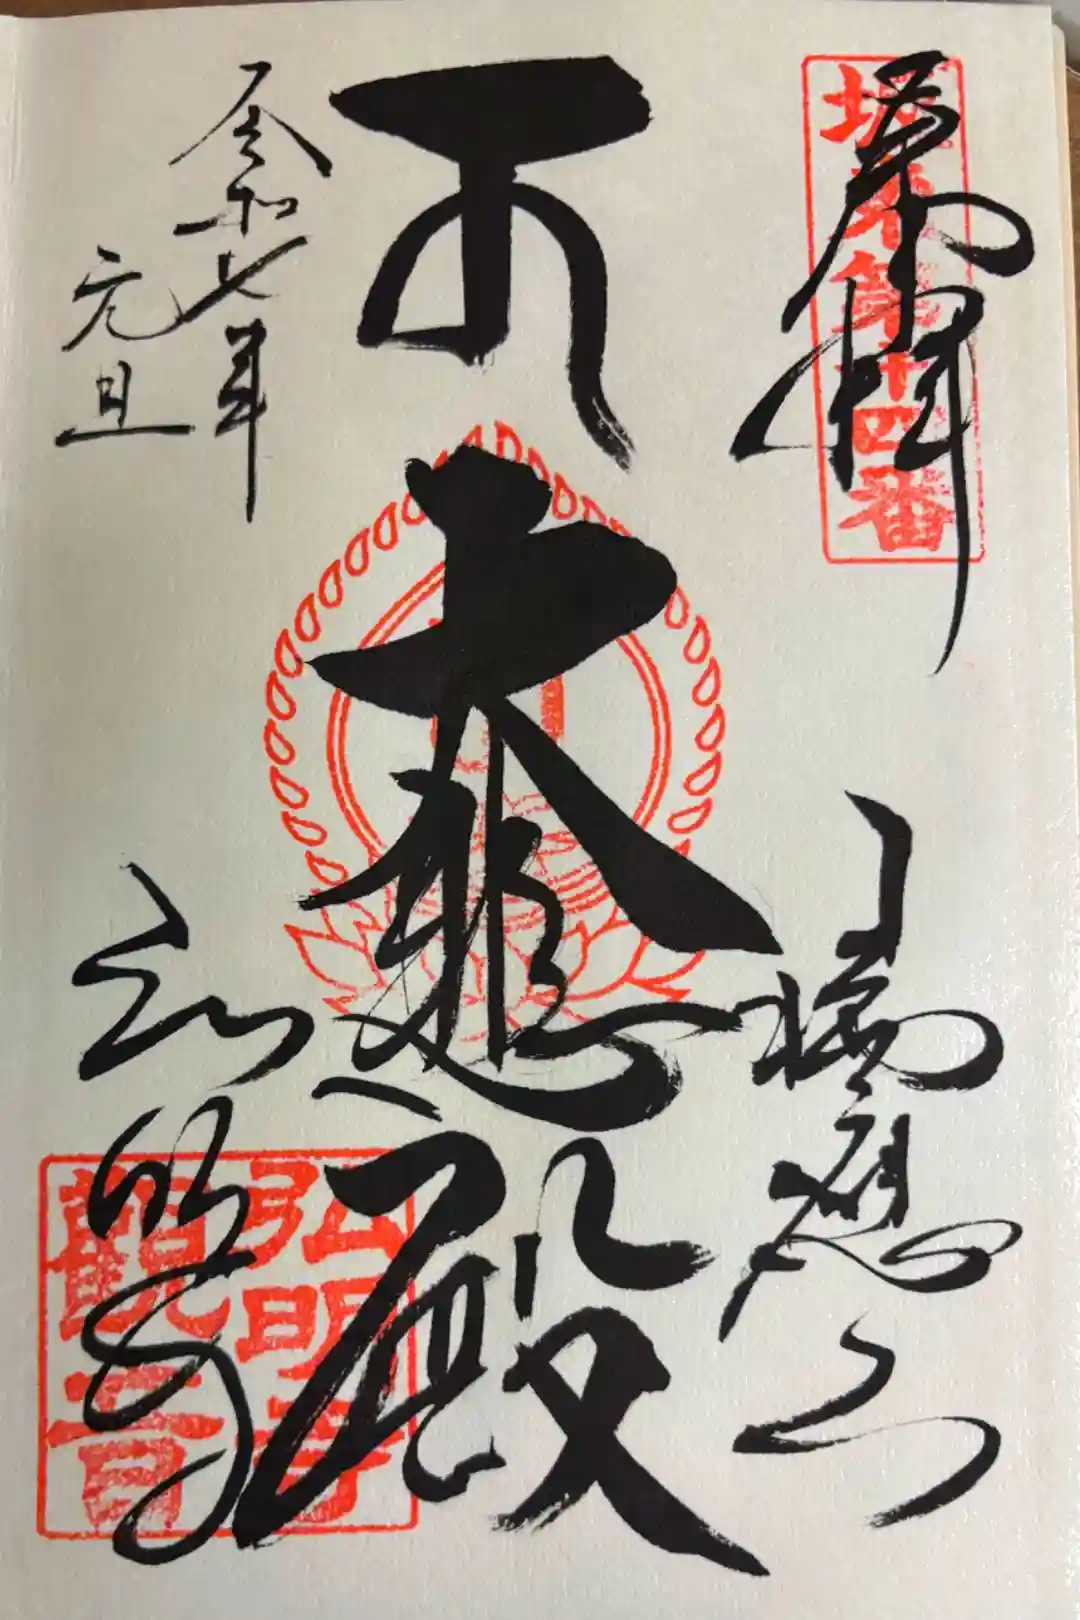 奉拝
坂東第十四番
瑞應山
大悲殿
弘明寺
弘明寺
觀音
令和七年
元旦